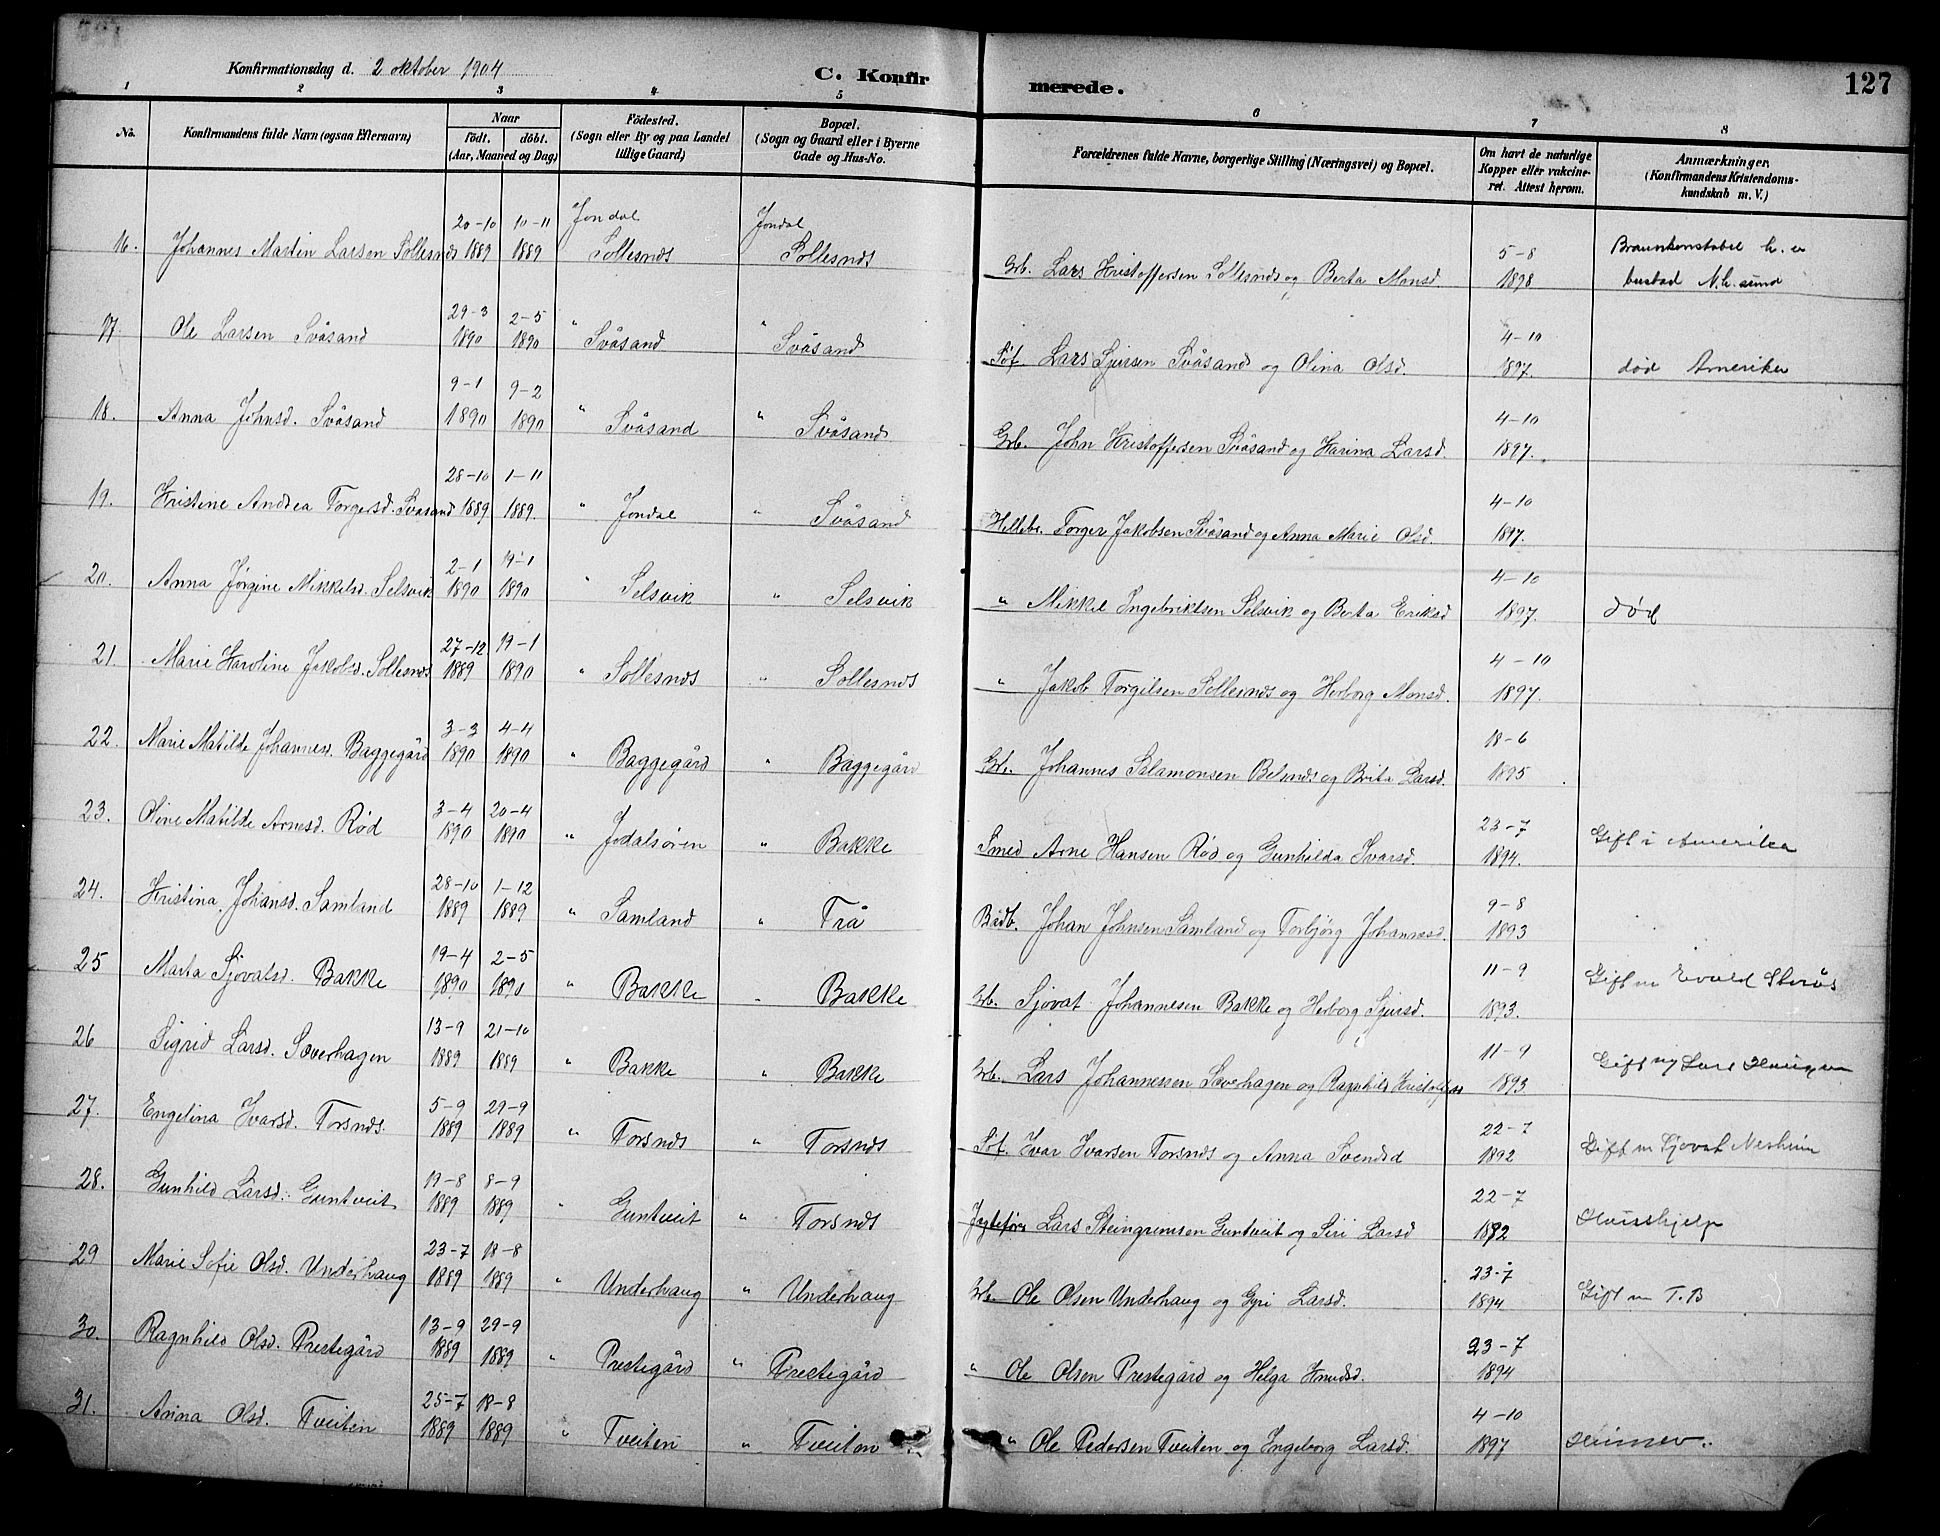 127
Konfirmationsdag d. 2 oktober 1904
C. Konfirmerede.
1 2 3 4 5 6 7 8
No. Konfirmandens fulde Navn (ogsaa Efternavn) Naar født. døbt. (Aar, Maaned og Dag) Fødested. (Sogn eller By og paa Landet tillige Gaard) Bopæl. (Sogn og Gaard eller i Byerne Gade og Hus-No. Forældrenes fulde Navne, borgerlige Stilling (Næringsvei) og Bopæl. Om havt de naturlige Kopper eller vakcineret. Attest herom. Anmærkninger. (Konfirmandens Kristendomskundskab m. V.)
16. Johannes Martin Larsen Sollesnes 20-10 1889 10-11 1889 Jondal Sollesnes Jondal Sollesnes Grb. Lars Kristoffersen Sollesnes og Berta Monsd. 5-8 1898 h. er bustad
17. Ole Larsen Svåsand 29-3 1890 2-5 1890 " Svåsand " Svåsand Søf. Lars Sjursen Svåsand og Olina Olsd. 4-10 1897. død Amerika
18. Anna Johnsd. Svåsand 9-1 1890 9-2 1890 " Svåsand " Svåsand Grb. John Kristoffersen Svåsand og Karina Larsd. 4-10 1897.
19. Kristine Andrea Torgersd. Svåsand 28-10 1889 1-11 1889. " Jondal " Svåsand Torger Jakobsen Svåsand og Anna Marie Olsd. 4-10 1897.
20. Anna Jørgine Mikkelsd. Selsvik 2-1 1890 19-1 1890 " Selsvik " Selsvik " Mikkel Ingebriktsen Selsvik og Berta Eriksd 4-10 1897. død
21. Marie Karoline Jakobsd. Sollesnes 27-12 1889 19-1 1890 " Sollesnes " Sollesnes " Jakob Torgilsen Sollesnes og Herborg Monsd. 4-10 1897.
22. Marie Matilde Johannesd. Baggegård 3-3 1890 4-4 1890 " Baggegård " Baggegård Grb. Johannes Salamonsen Belsnes og Brita Larsd. 18-6 1895
23. Oline Matilde Arnesd. Rød 3-4 1890 20-4 1890 " Jodalsøren " Bakke Smed Arne Hansen Rød og Gunhilda Ivarsd. 23-7 1894. Gift i Amerika
24. Kristina Johansd. Samland 28-10 1889 1-12 1889 " Samland " Trå Bådb. Johan Johnsen Samland og Torbjørg Johannesd. 9-8 1893
25 Marta Sjovatsd. Bakke 19-4 1890 2-5 1890 " Bakke " Bakke Grb. Sjovat Johannesen Bakke og Herborg Sjursd. 11-9 1893. Gift m Evald
26 Sigrid Larsd. Sæverhagen 13-9 1889 21-10 1889 " Bakke " Bakke Grb. Lars Johannessen Sæverhagen og Ragnhild 11-9 1893 Gift
27. Engelina Ivarsd. Torsnes. 5-9 1889 29-9 1889 " Torsnes " Torsnes Søf. Ivar Ivarsen Torsnes og Anna Svendsd 22-7 1892 Gift m Sjovat
28. Gunhild Larsd. Guntveit 19-8 1889 8-9 1889 " Guntveit " Torsnes Lars Steingrimsen Guntveit og Siri Larsd 22-7 1892 Husshjelp
29 Marie Sofie Olsd. Underhaug 23-7 1889 18-8 1889 " Underhaug " Underhaug Grb. Ole Olsen Underhaug og Gyri Larsd. 23-7 1894 Gift m T.B
30. Ragnhild Olsd. Prestegård 13-9 1889 29-9 1889 " Prestegård " Prestegård " Ole Olsen Prestegård og Helga Knudsd. 23-7 1894
31. Anna Olsd. Tveiten 25-7 1889 18-8 1889 " Tveiten " Tveiten " Ole Pedersen Tveiten og Ingeborg Larsd. 4-10 1897